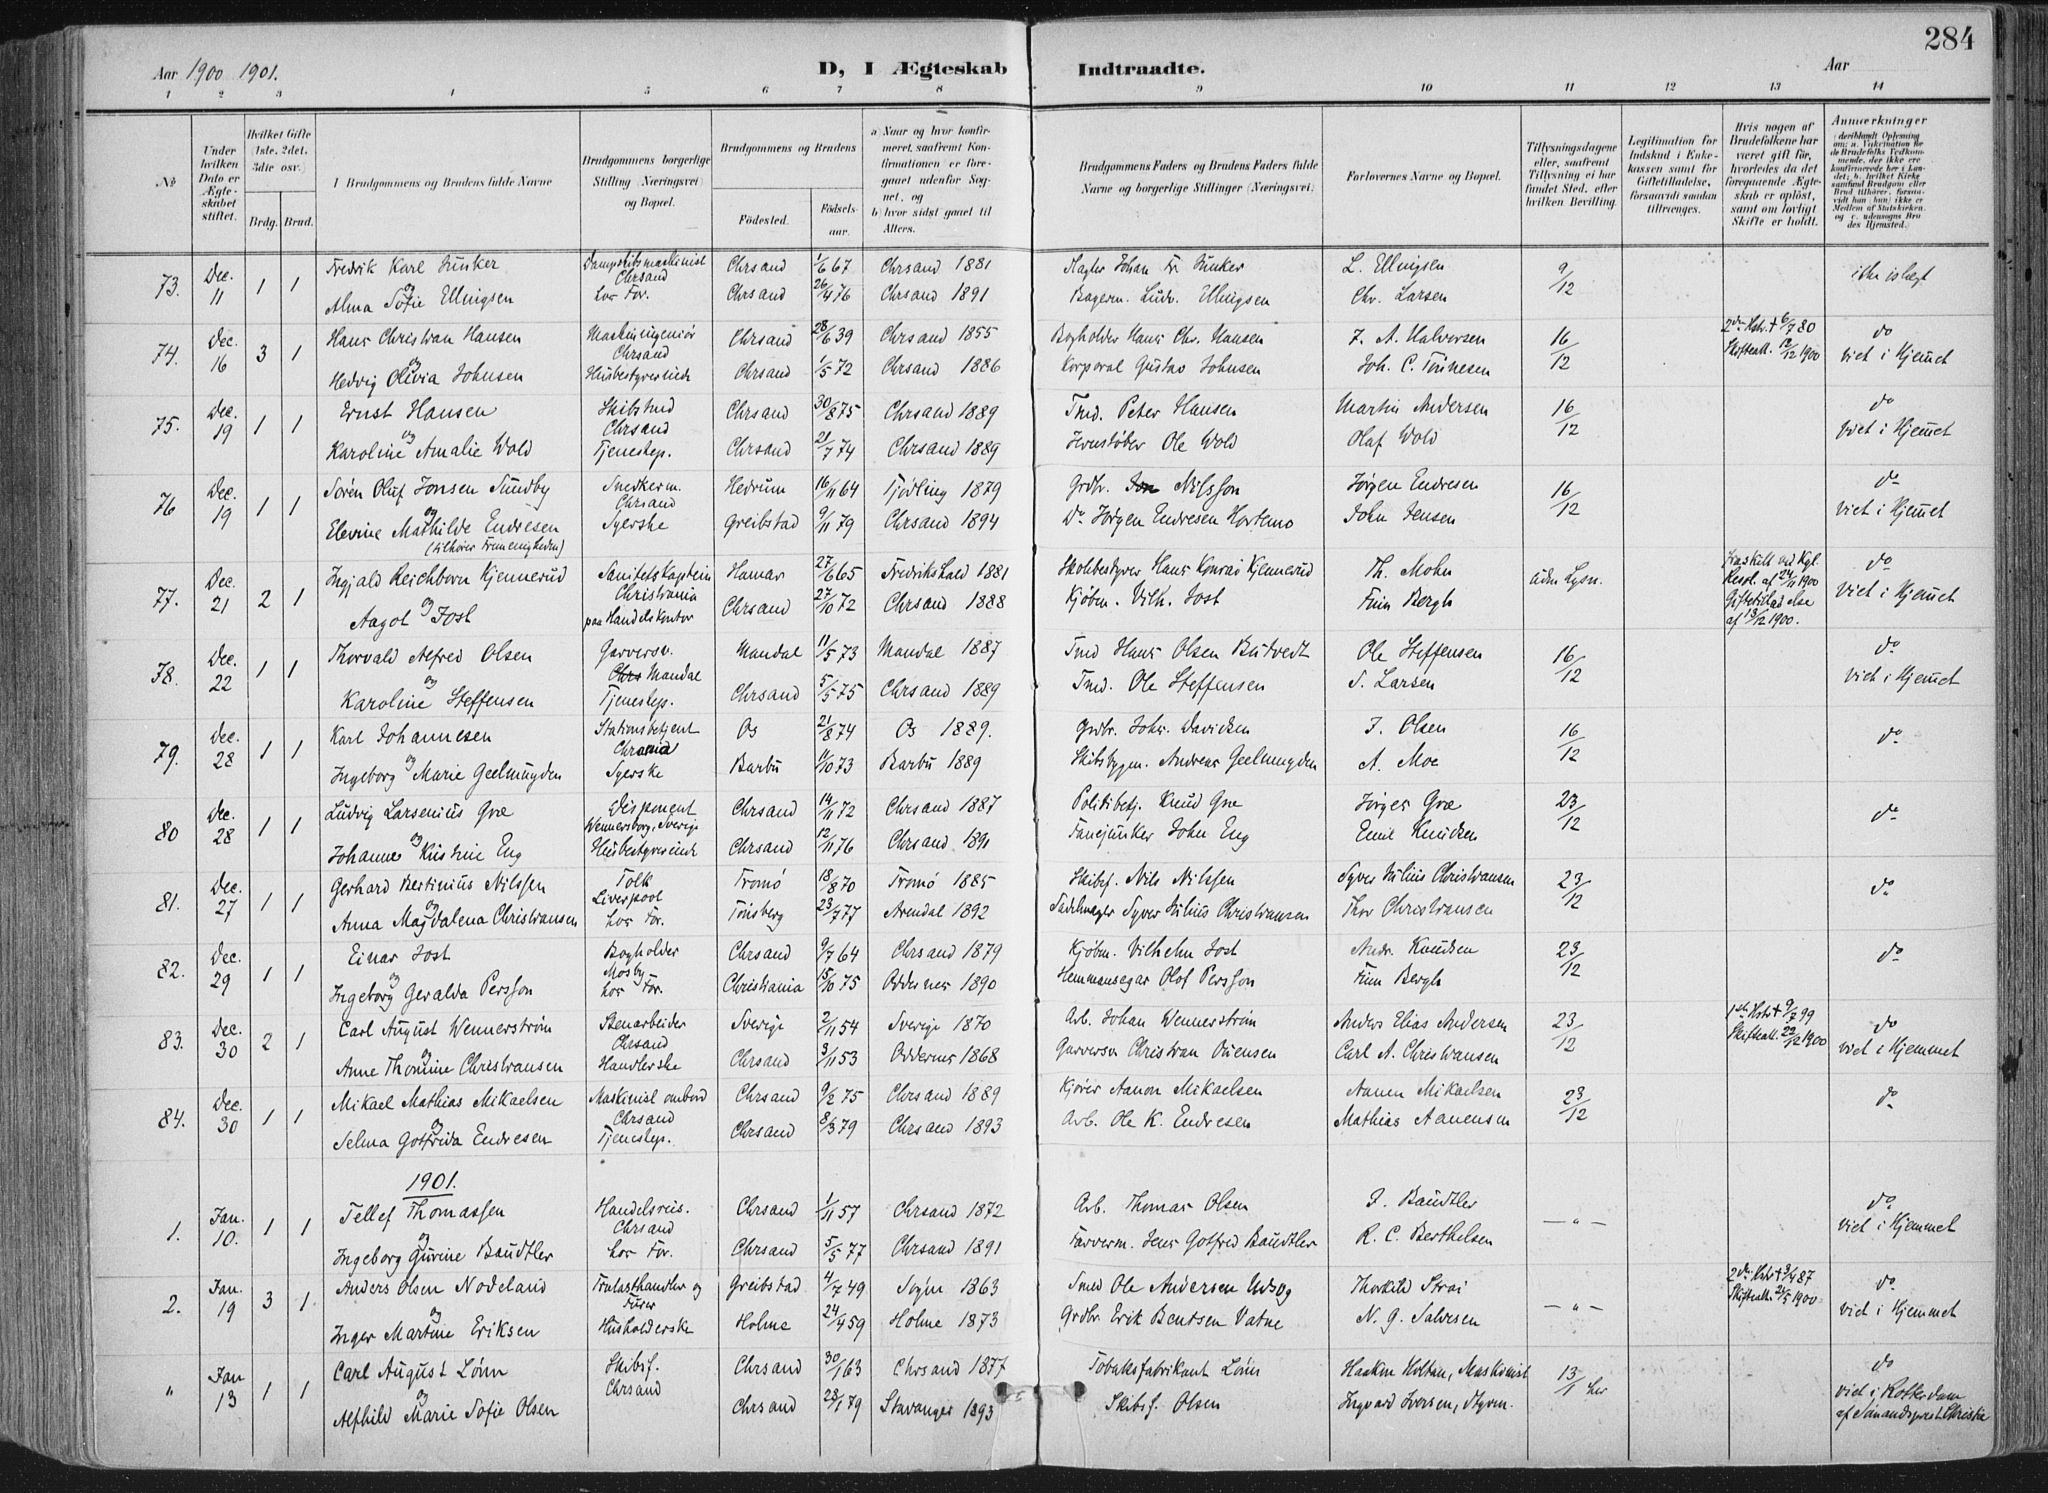 284
Aar 1900 1901.
D, I Ægteskab Indtraadte.
Aar
1 2 3 4 5 6 7 8 9 10 11 12 13 14
No
Under hvilken Dato er Ægteskabet stiftet.
Hvilket Gifte (1ste, 2det, 3die osv.)
Brdg. Brud.
I Brudgommens og Brudens fulde Navne
Brudgommens borgerlige Stilling (Næringsvei) og Bopæl.
Brudgommens og Brudens
Fødested. Fødselsaar.
a) Naar og hvor konfirmeret, saafremt Konfirmationen er foregaaet udenfor Sognet, og
b) hvor sidst gaaet til Alters.
Brudgommens Faders og Brudens Faders fulde Navne og borgerlige Stillinger (Næringsvei).
Forlovernes Navne og Bopæl.
Tillysningsdagene eller, saafremt Tillysning ei har fundet Sted, efter hvilken Bevilling.
Legitimation for Indskud i Enkekassen samt for Giftetilladelse, forsaavidt saadan tiltrænges.
Hvis nogen af Brudefolkene har været gift før, hvorledes da det foregaaende Ægteskab er opløst, samt om lovligt Skifte er holdt.
Anmærkninger
73. Dec. 11 1 1 Fredrik Karl Junker Dampskibsmaskinist Chrsand Chrsand 1/6 67 Chrsand 1881 Slagter Johan Fr. Junker L. Ellingsen 9/12
og Alma Sofie Ellingsen hos For. Chrsand 26/4 76 Chrsand 1891 Bagerm. Ludv. Ellingsen Chr. Larsen
74. Dec. 16 3 1 Hans Christian Hansen Maskiningeniör Chrsand Chrsand 28/6 39 Chrsand 1855 Bogholder Hans Chr. Hansen J. A. Halvorsen 16/12 2den Hstr. + 6/7 80 Skifteatt. 12/12 1900 do viet i Hjemet
og Hedvig Olivia Johnsen Husbestyrerinde Chrsand 1/5 72 Chrsand 1886 Korporal Gustav Johnsen Joh. C. Tönnesen
75. Dec. 19 1 1 Ernst Hansen Skibstmd Chrsand Chrsand 30/8 75 Chrsand 1889 Tmd. Peter Hansen Martin Andersen 16/12 do viet i Hjemet
og Karoline Amalie Wold Tjenestep. Chrsand 21/7 74 Chrsand 1889 Jernstøber Ole Wold Olaf Wold
76 Dec. 19 1 1 Sorén Oluf Jonsen Sundby Snedkerm. Chrsand Hedrum 16/11 64 Tjodling 1879 Grdbr. Jon Nilsson Jörgen Endresen 16/12 do viet i Hjemet
og Elevine Mathilde Endresen Syerske Greibstad 9/11 79 Chrsand 1894 Do Jörgen Endresen Hortemo John Jensen
(tilhører Frimenigheden)
77. Dec. 21 2 1 Ingjald Reichborn Kjennerud Sanitetskaptein Christiania Hamar 27/6 65 Fredrikshald 1881 Skolebestyrer Hans Konrad Kjennerud Th. Mohn uden Lysn. fraskilt ved Kgl. Resol. af 24/11 1900 Giftetilladelse af 13/12 1900. do viet i Hjemet
og Aagot Jost paa Handelskontor Chrsand 27/10 72 Chrsand 1888 Kjøbm. Vilh. Jost Finn Bergh
78. Dec. 22 1 1 Thorvald Alfred Olsen Garversv. Mandal Mandal 11/5 73 Mandal 1887 Tmd Hans Olsen Butvedt Ole Steffensen 16/12 do viet i Hjemet
og Karoline Steffensen Tjenestep. Chrsand 5/5 75 Chrsand 1889 Tmd. Ole Steffensen S. Larsen
79. Dec. 28 1 1 Karl Johannesen Stationsbetjent Chrania Os 21/8 74 Os 1889. Grdbr. Johs. Davidsen J. Olsen 16/12 do
og Ingeborg Marie Geelmuyden Syerske Barbu 11/10 73 Barbu 1889 Skibsbygm. Andreas Geelmuyden A. Moe
80 Dec. 28 1 1 Ludvig Larsenius Gve Disponent Wennersborg, Sverige Chrsand 14/11 72 Chrsand 1887 Politibetj. Knud Gve Jörgen Gve 23/12 do
og Johanne Kristine Eng Husbestyrerinde Chrsand 12/11 76 Chrsand 1891 Fanejunker John Eng Emil Knudsen
81. Dec. 27 1 1 Gerhard Bertinius Nilssen Tolk Liverpool Tromö 18/8 70 Tromö 1885 Skibsf. Nils Nilssen Syver Julius Christiansen 23/12 do
og Anna Magdalena Christiansen hos For. Tönsberg 23/7 77 Arendal 1892 Sadelmager Syver Julius Christiansen Thor Christiansen
82. Dec. 29 1 1 Einar Jost Bogholder Mosby Chrsand 9/7 64 Chrsand 1879 Kjøbm. Vilhelm Jost Andr. Knudsen 23/12 do
og Ingeborg Geralda Persson hos For. Christiania 15/10 75 Oddernes 1890 Hemmansegar Olof Persson Finn Bergh
83. Dec. 30 2 1 Carl August Wennerström Stenarbeider Chrsand Sverige 2/11 54 Sverige 1870 Arb. Johan Wennerström Anders Elias Andersen 23/12 1ste Hstr + 9/7 99 Skifteatt. 22/12 1900 do viet i Hjemmet
og Anne Thomine Christiansen Handlerske Chrsand 3/11 53 Oddernes 1868 Garversv Christian Ouensen Carl A. Christiansen
84. Dec. 30 1 1 Mikael Mathias Mikaelsen Maskinist ombord Chrsand Chrsand 9/2 75 Chrsand 1889 Kjører Aanon Mikaelsen Aanen Mikaelsen 23/12 do
og Selma Gotfrida Endresen Tjenestep. Chrsand 8/3 79 Chrsand 1893 Arb. Ole K. Endresen Mathias Aanensen
1901.
1. Jan. 10. 1 1 Tellef Thomassen Handelsreis. Chrsand Chrsand 1/11 57 Chrsand 1872 Arb. Thomas Olsen J. Baudtler — " — do viet i Hjemmet
og Ingeborg Gurine Baudtler hos For. Chrsand 5/5 77 Chrsand 1891 Farverm. Jens Gotfred Baudtler R. C. Berthelsen
2. Jan. 19 3 1 Anders Olsen Nodeland Trælasthandler og Greibstad 4/7 49 Søgn 1863 Tmd Ole Andersen Thorkild Strai — " — 2den Hstr + 3/4 87 Skifteatt. 21/5 1900 do viet i Hjemmet
og Inger Martine Eriksen Husholderske Holme 24/4 59 Holme 1873 Grdbr. Erik Bentsen Vatne N. G. Salvesen
" Jan 13 1 1 Carl August Lönn Skibsf. Chrsand Chrsand 30/1 63 Chrsand 1877 Tobaksfabrikant Lönn Haaken Holtan, Maskinist 13/1 her do viet i Rotterdam af Sømandsprest
og Alfhild Marie Sofie Olsen Chrsand 28/1 79 Stavanger 1893 Skibsf. Olsen Ingvard Iversen, Styrm.